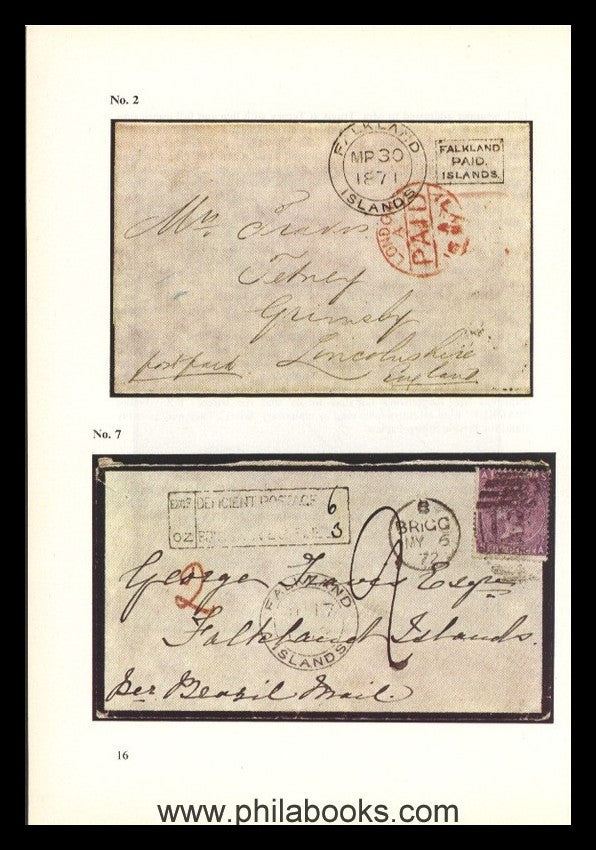 No. 2
FALKLAND
MR 30
1871
ISLANDS
FALKLAND
PAID.
ISLANDS.
LONDON
PAID
Mrs. Travis
Tetney
Grimsby
Lincolnshire
England
postpaid
No. 7
DEFICIENT POSTAGE 6
OZ 3
B
BRIGG
MY 6
72
George Travis Esqre
FALKLAND
17
ISLANDS
Falkland Islands.
Per Brazil Mail.
16
www.philabooks.com